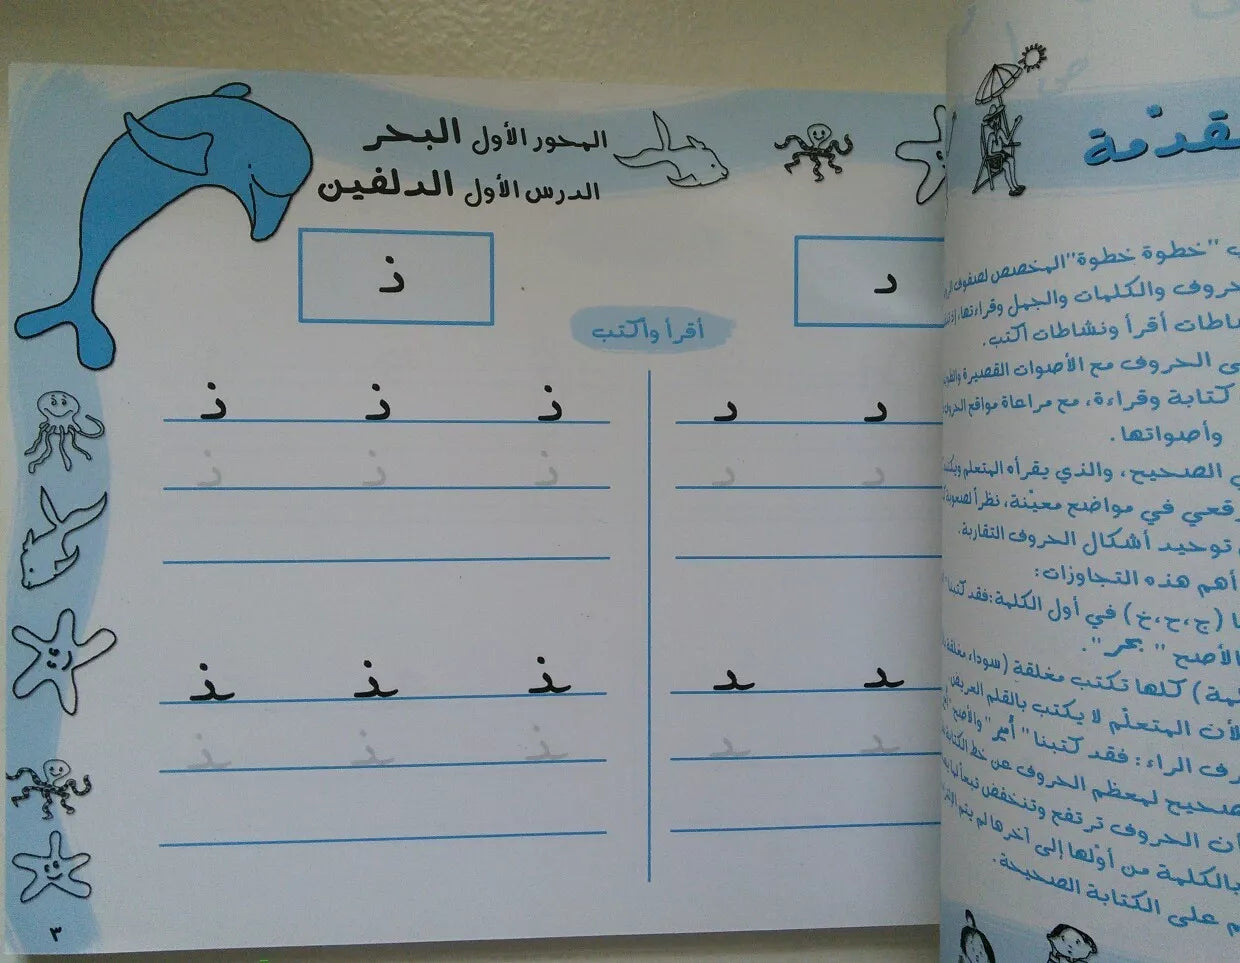 المحور الأول البحر
الدرس الأول الدلفين
د
ذ
أقرأ وأكتب
د د
ذ ذ ذ
د د
ذ ذ ذ
ـد ـد
ـذ ـذ ـذ
ـد ـد
ـذ ـذ ـذ
٣
"خطوة خطوة" المخصص لصفوف
والكلمات والجمل وقراءتها،
أقرأ ونشاطات أكتب.
الحروف مع الأصوات القصيرة
كتابة وقراءة، مع مراعاة مواقع
وأصواتها.
الصحيح، والذي يقرأه المتعلم
في مواضع معيّنة، نظراً لصعوبة
توحيد أشكال الحروف التقاربة.
أهم هذه التجاوزات:
(ج،ح،خ) في أول الكلمة: فقد كتبنا
الأصح " بحر ".
كلها تكتب مغلقة (سوداء مغلقة
لأن المتعلّم لا يكتب بالقلم العريض
الراء: فقد كتبنا " أمير" والأصح
لمعظم الحروف عن خط الكتابة
الحروف ترتفع وتنخفض تبعاً
بالكلمة من أوّلها إلى آخرها لم يتم
على الكتابة الصحيحة.